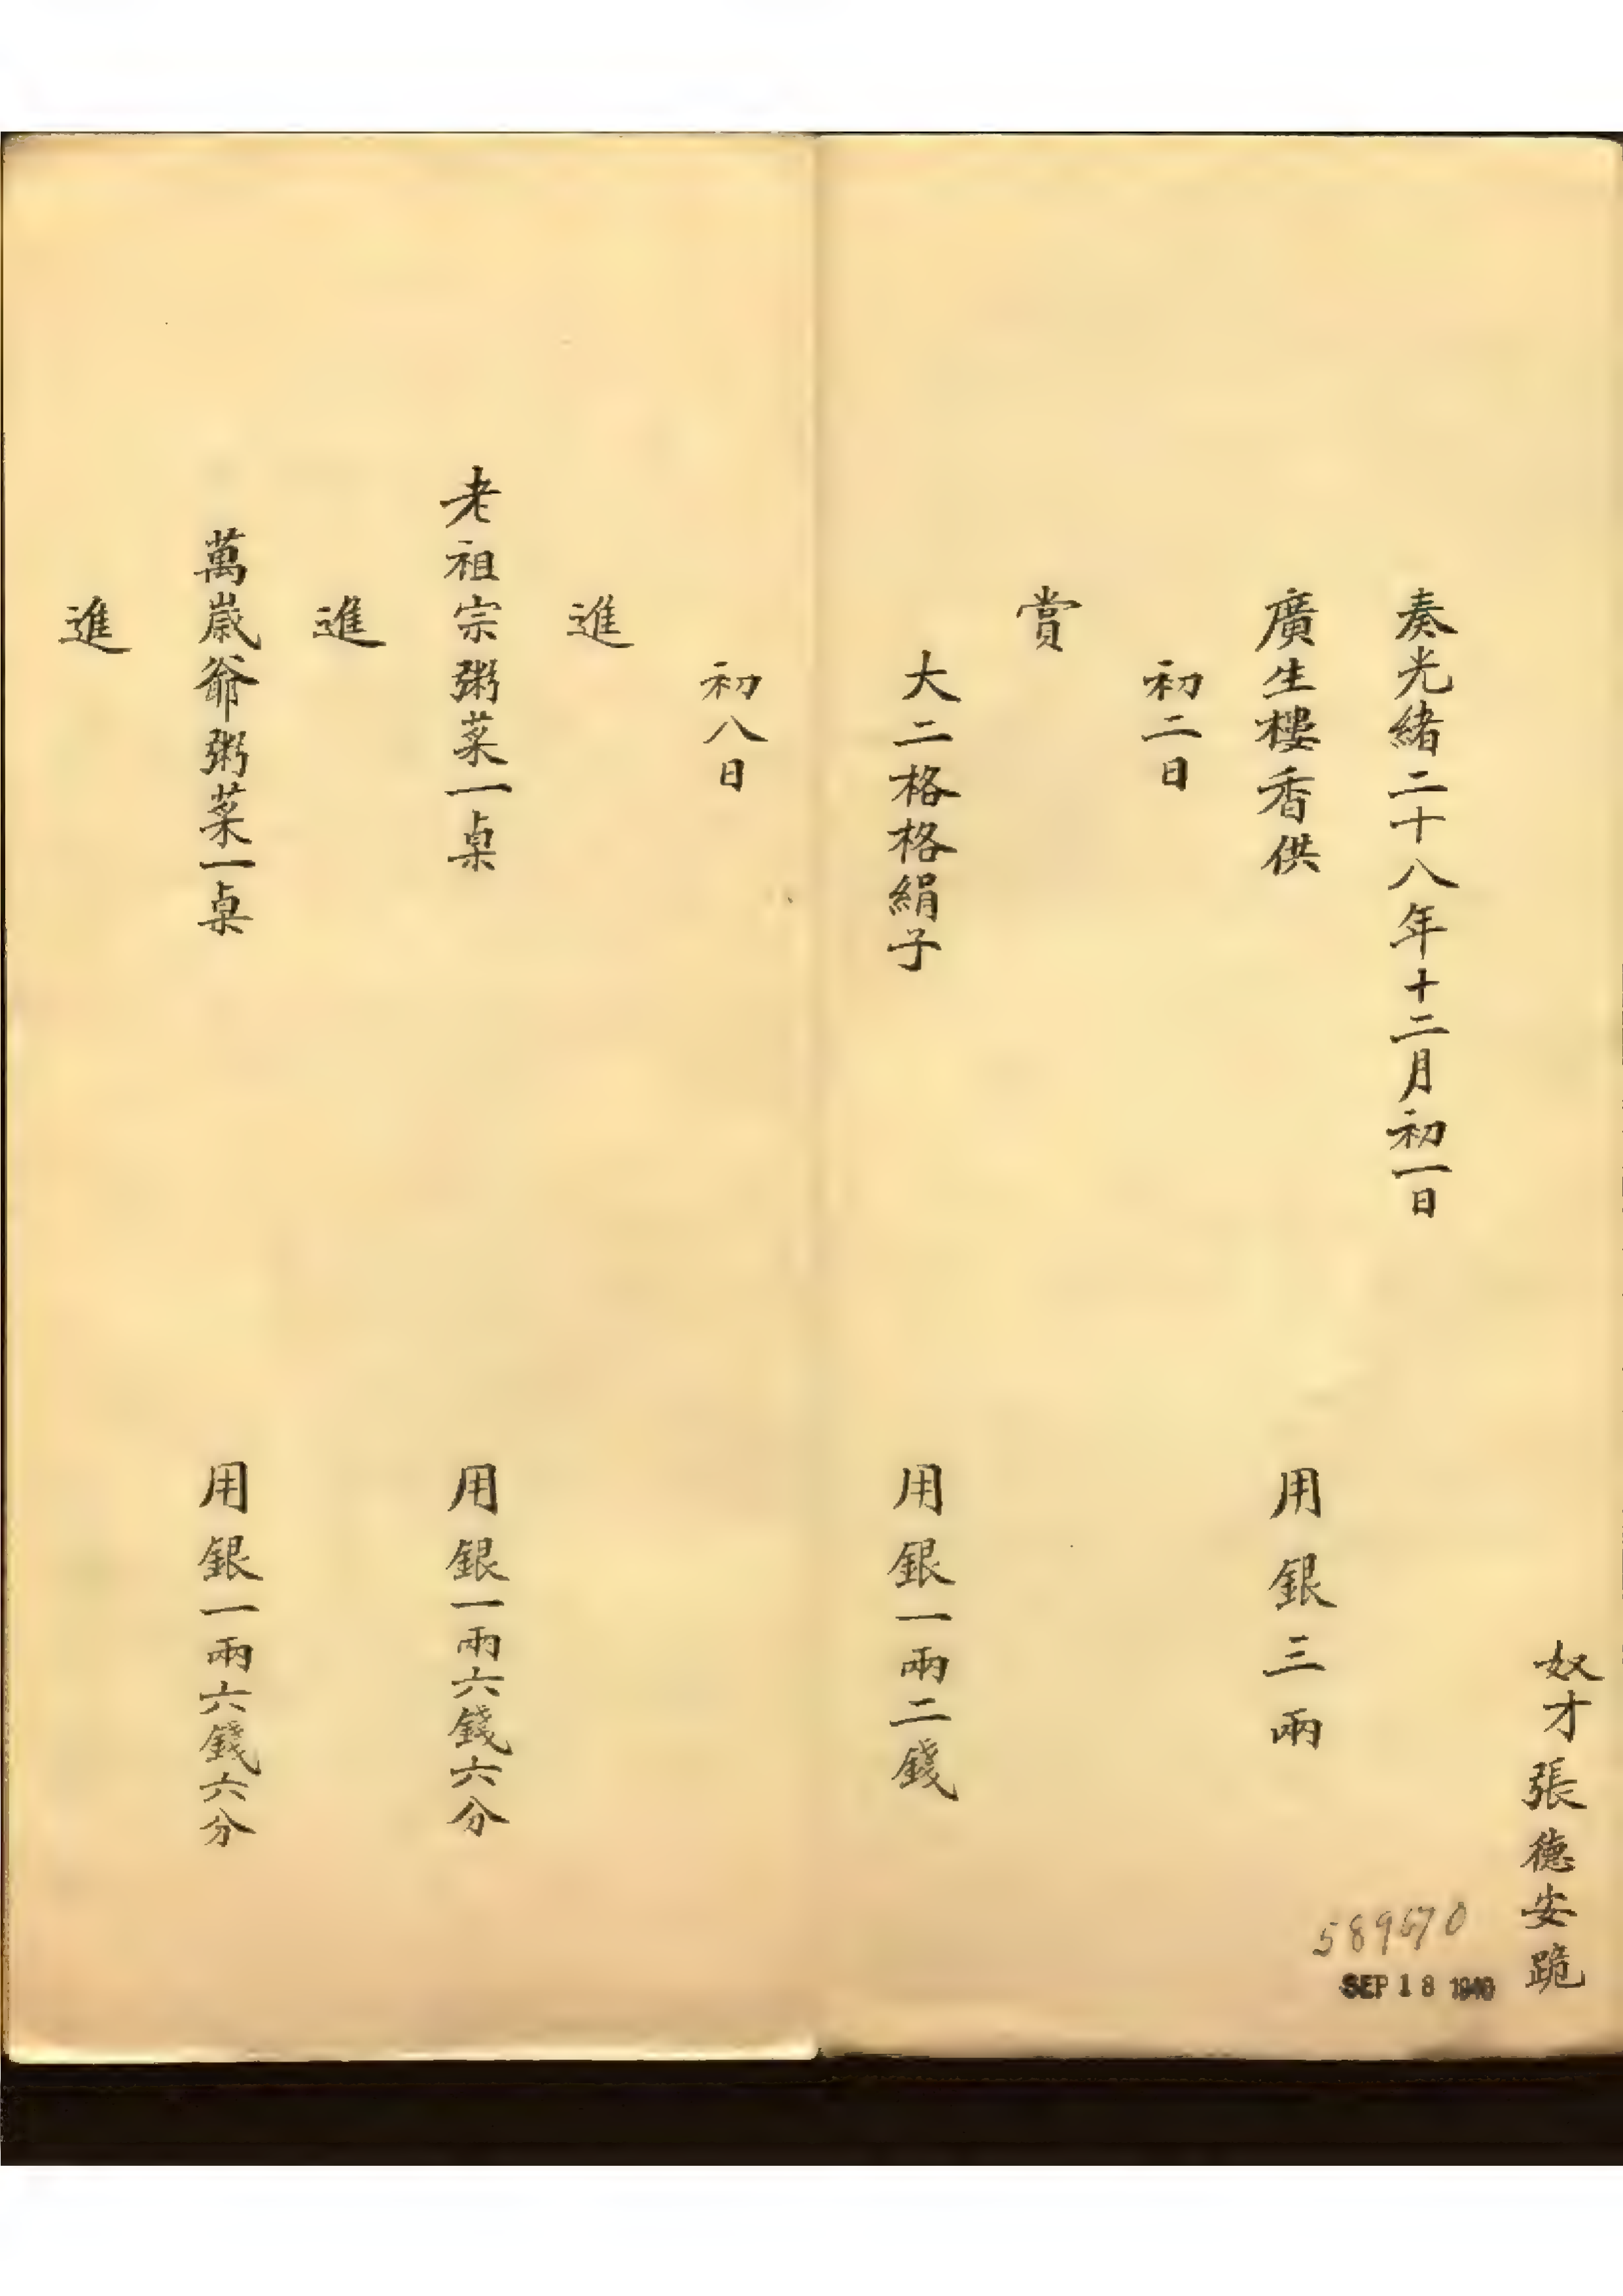 奴才張德安跪
奏光緒二十八年十二月初一日
廣生樓香供 用銀三兩
初二日
賞
大二格格絹子 用銀一兩二錢
初八日
進
老祖宗粥菜一桌 用銀一兩六錢六分
進
萬歲爺粥菜一桌 用銀一兩六錢六分
進
589670
SEP 18 1946